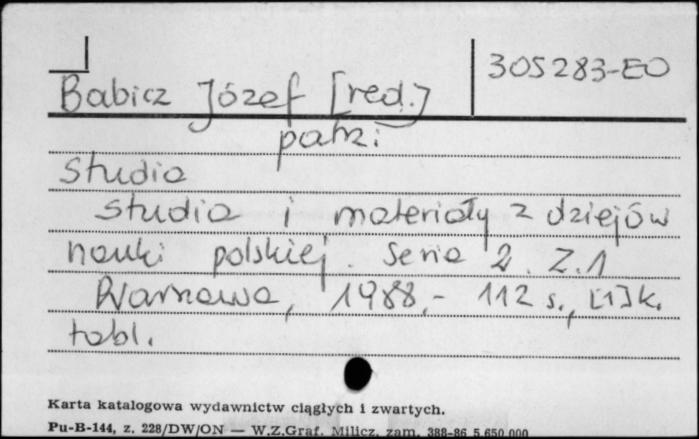 305283-EO
Babicz Józef [red.]
patrz:
Studia
Studia i materiały z dziejów
nauki polskiej. Seria 2. Z.1
Warszawa, 1988.- 112 s., [1]k.
tabl.
Karta katalogowa wydawnictw ciągłych i zwartych.
Pu-B-144, z. 228/DW/ON — W.Z.Graf. Milicz, zam. 388-86 5.650.000